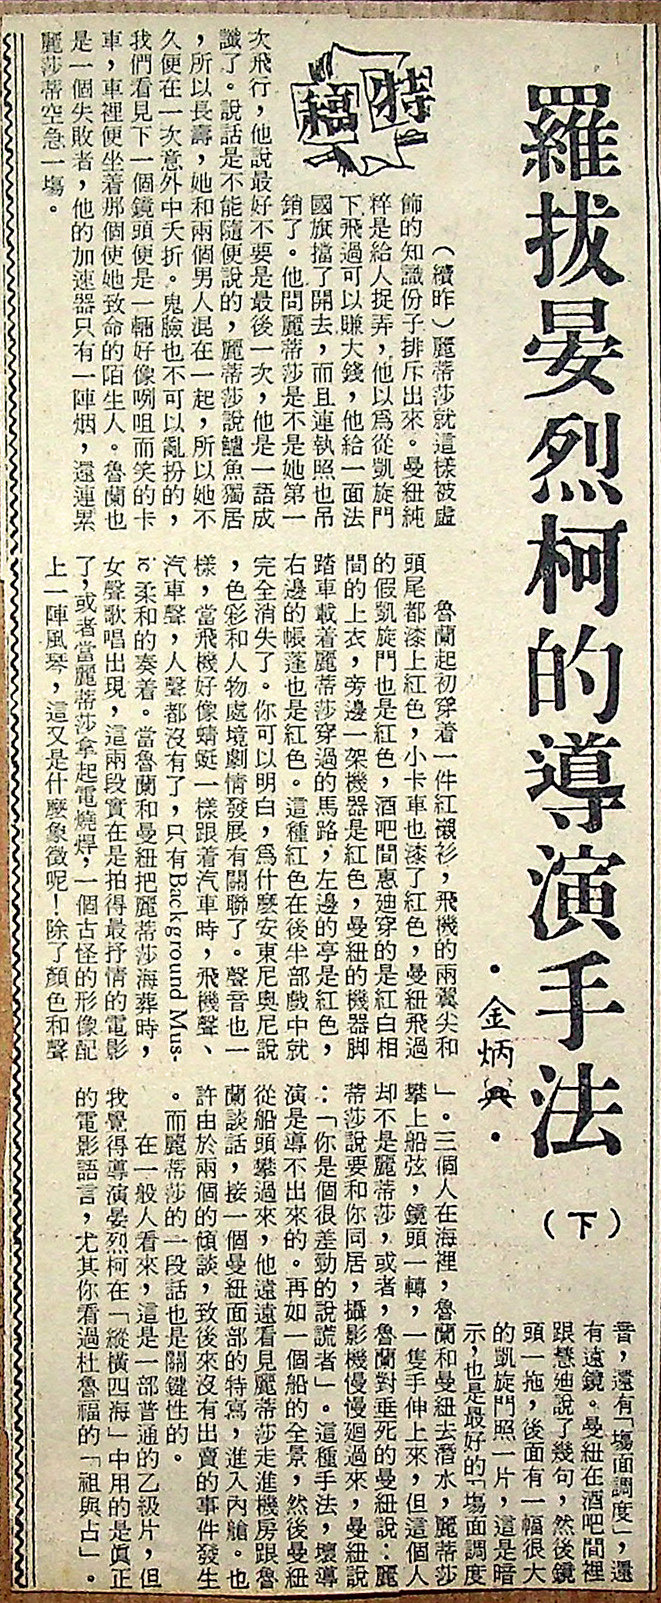 羅拔晏烈柯的導演手法(下)
·金炳興·
特稿
(續昨)麗蒂莎就這樣被虛
飾的知識份子排斥出來。曼紐純
粹是給人捉弄,他以為從凱旋門
下飛過可以賺大錢,他給一面法
國旗擋了開去,而且連執照也吊
銷了。他問麗蒂莎是不是她第一
次飛行,他說最好不要是最後一次,他是一語成
讖了。說話是不能隨便說的,麗蒂莎說鱸魚獨居
,所以長壽,她和兩個男人混在一起,所以她不
久便在一次意外中夭折。鬼臉也不可以亂扮的,
我們看見下一個鏡頭便是一輛好像咧咀而笑的卡
車,車裡便坐着那個使她致命的陌生人。魯蘭也
是一個失敗者,他的加速器只有一陣烟,還連累
麗莎蒂空急一塲。
魯蘭起初穿着一件紅襯衫,飛機的兩翼尖和
頭尾都漆上紅色,小卡車也漆了紅色,曼紐飛過
的假凱旋門也是紅色,酒吧間惠廸穿的是紅白相
間的上衣,旁邊一架機器是紅色,曼紐的機器脚
踏車載着麗蒂莎穿過的馬路,左邊的亭是紅色,
右邊的帳蓬也是紅色。這種紅色在後半部戲中就
完全消失了。你可以明白,爲什麼安東尼奧尼說
,色彩和人物處境劇情發展有關聯了。聲音也一
樣,當飛機好像蜻蜓一樣跟着汽車時,飛機聲、
汽車聲,人聲都沒有了,只有Background Mus-
ic 柔和的奏着。當魯蘭和曼紐把麗蒂莎海葬時,
女聲歌唱出現,這兩段實在是拍得最抒情的電影
了,或者當麗蒂莎拿起電燒焊,一個古怪的形像配
上一陣風琴,這又是什麼象徵呢!除了顏色和聲
音,還有「塲面調度」,還
有遠鏡。曼紐在酒吧間裡
跟慧廸說了幾句,然後鏡
頭一拖,後面有一幅很大
的凱旋門照一片,這是暗
示,也是最好的「塲面調度
」。三個人在海裡,魯蘭和曼紐去潛水,麗蒂莎
攀上船弦,鏡頭一轉,一隻手伸上來,但這個人
却不是麗蒂莎,或者,魯蘭對垂死的曼紐說:麗
蒂莎說要和你同居,攝影機慢慢廻過來,曼紐說
:「你是個很差勁的說謊者」。這種手法,壞導
演是導不出來的。再如一個船的全景,然後曼紐
從船頭攀過來,他遠遠看見麗蒂莎走進機房跟魯
蘭談話,接一個曼紐面部的特寫,進入內艙。也
許由於兩個的傾談,致後來沒有出賣的事件發生
。而麗蒂莎的一段話也是關鍵性的。
在一般人看來,這是一部普通的乙級片,但
我覺得導演晏烈柯在「縱橫四海」中用的是眞正
的電影語言,尤其你看過杜魯福的「祖與占」。